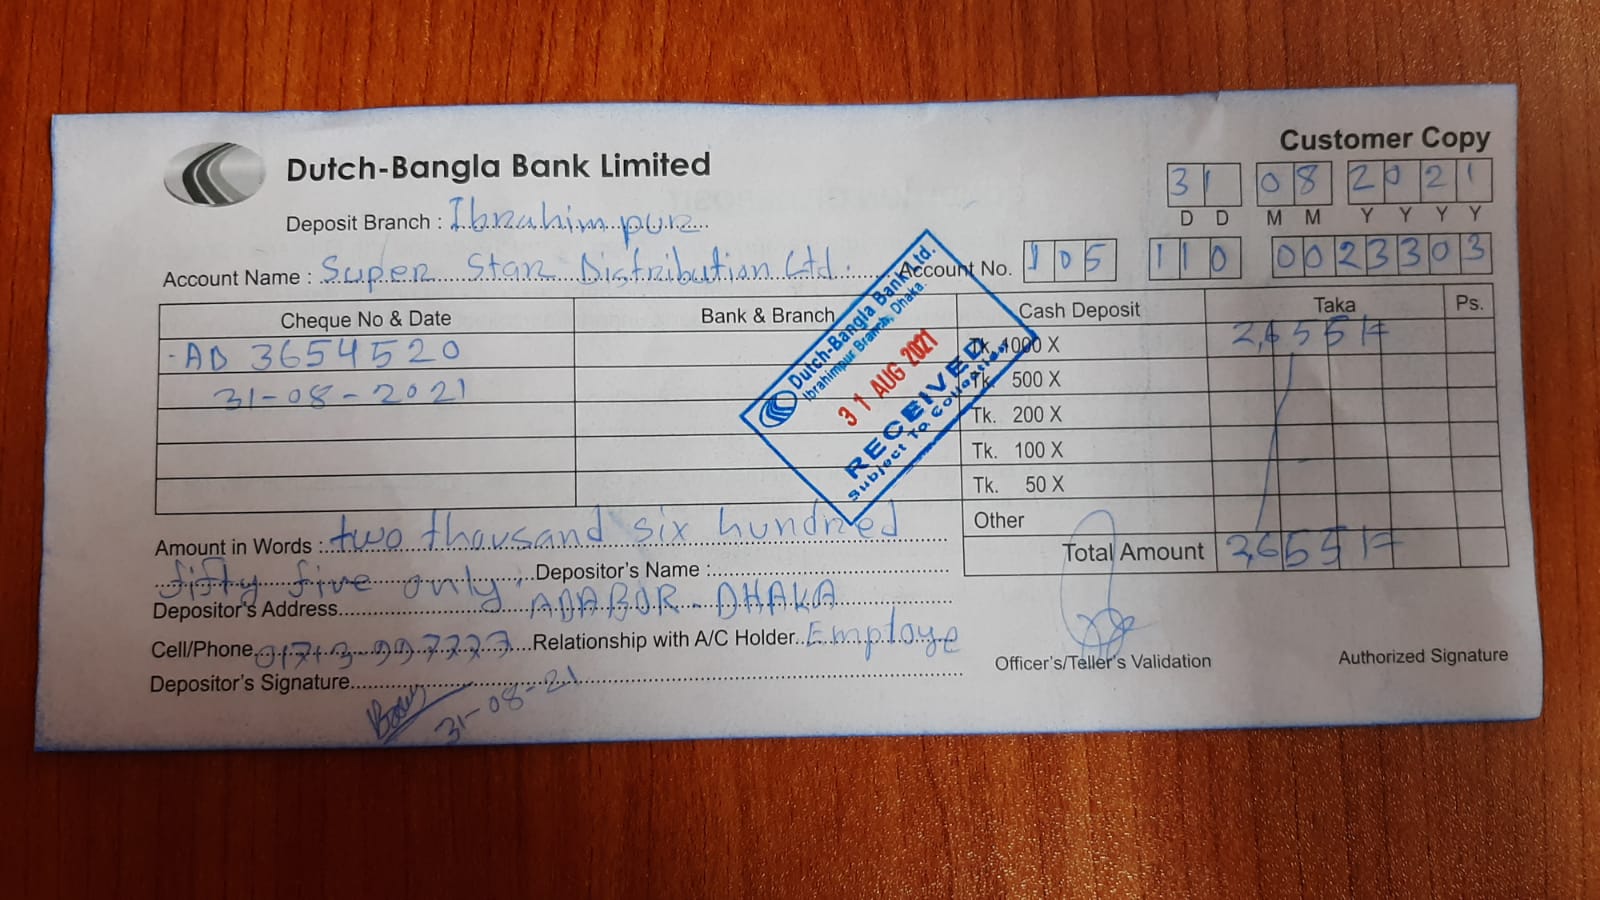 Customer Copy
Dutch-Bangla Bank Limited
31 08 2021
D D M M Y Y Y Y
Deposit Branch : Ibrahimpur
Account Name : Super Star Distribution Ltd. Account No. 105 110 0023303
Cheque No & Date Bank & Branch Cash Deposit Taka Ps.
AD 3654520 Tk. 1000 X 2,655/=
31-08-2021 Tk. 500 X
Tk. 200 X
Tk. 100 X
Tk. 50 X
Other
Total Amount 2,655/=
Dutch-Bangla Bank Ltd.
Ibrahimpur Branch, Dhaka.
31 AUG 2021
RECEIVED
Subject To Collection
Amount in Words : two thousand six hundred
fifty five only. Depositor's Name :
Depositor's Address ADABOR - DHAKA
Cell/Phone 01713-997773 Relationship with A/C Holder Employe
Officer's/Teller's Validation Authorized Signature
Depositor's Signature
31-08-21